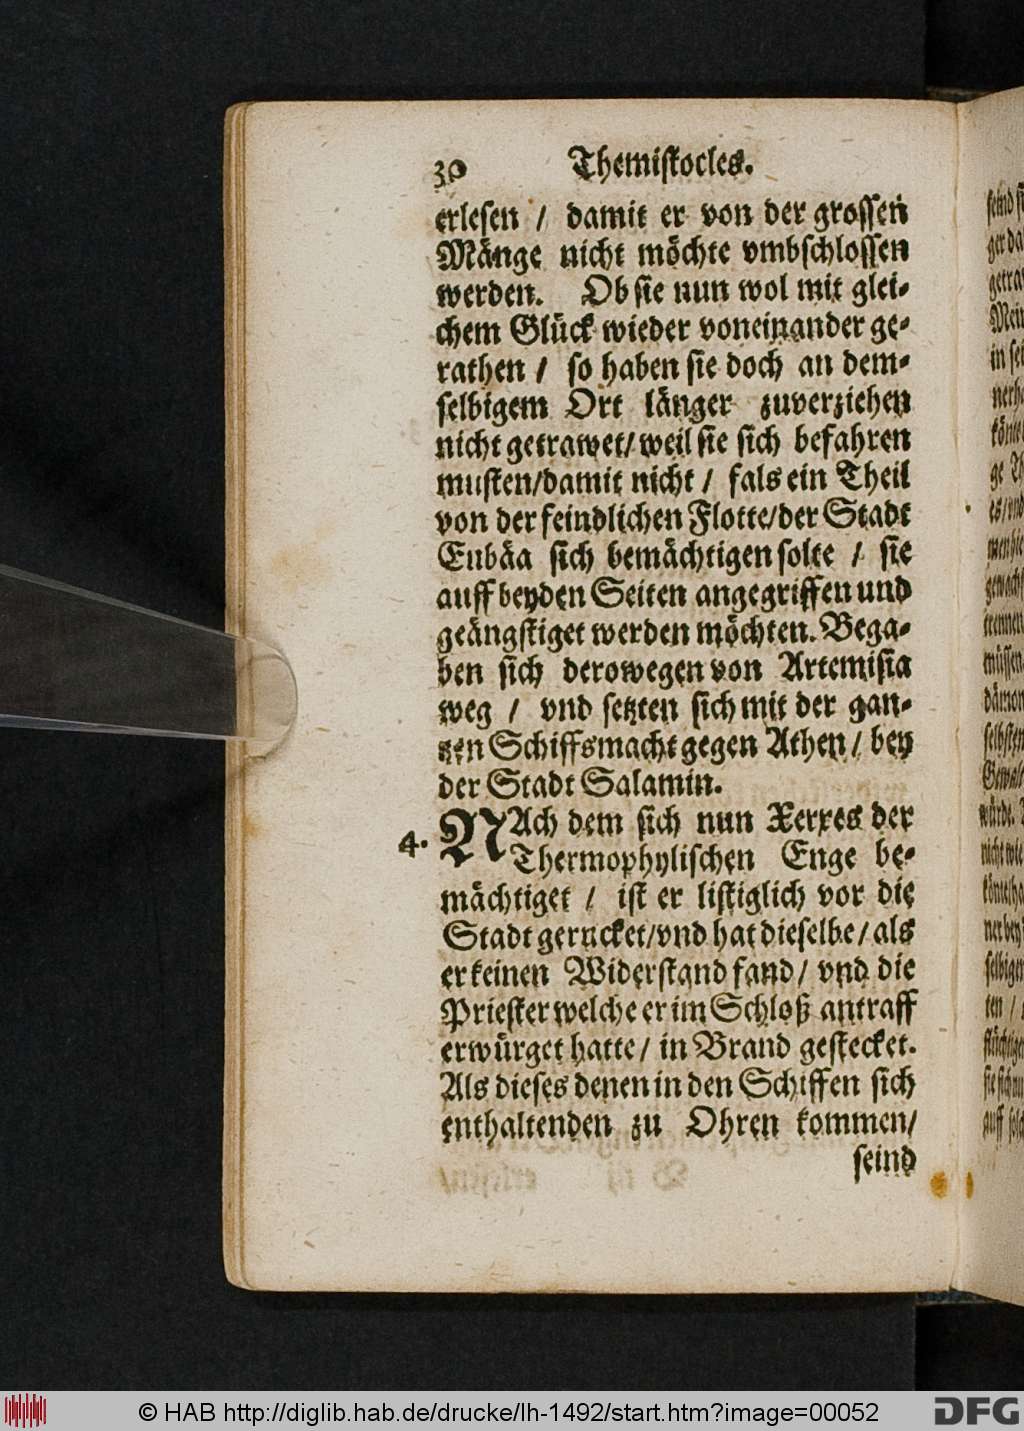 30 Themistocles.
erlesen / damit er von der grossen
Mänge nicht möchte vmbschlossen
werden. Ob sie nun wol mit glei-
chem Glück wieder voneinander ge-
rathen / so haben sie doch an dem-
selbigem Ort länger zuverziehen
nicht getrawet/ weil sie sich befahren
musten/damit nicht / fals ein Theil
von der feindlichen Flotte/der Stadt
Eubäa sich bemächtigen solte / sie
auff beyden Seiten angegriffen und
geängstiget werden möchten. Bega-
ben sich derowegen von Artemisia
weg / vnd setzten sich mit der gan-
tzen Schiffsmacht gegen Athen / bey
der Stadt Salamin.
4. NAch dem sich nun Xerxes der
Thermophylischen Enge be-
mächtiget / ist er listiglich vor die
Stadt gerucket/vnd hat dieselbe/ als
er keinen Widerstand fand/ vnd die
Priester welche er im Schloß antraff
erwürget hatte/ in Brand gestecket.
Als dieses denen in den Schiffen sich
enthaltenden zu Ohren kommen/
seind
© HAB http://diglib.hab.de/drucke/lh-1492/start.htm?image=00052
DFG